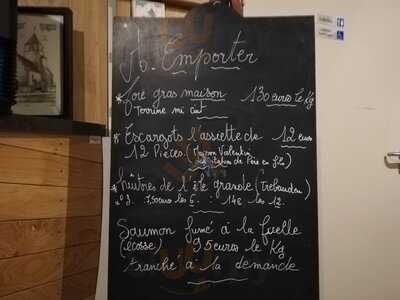 A Emporter
* foie gras maison 130 euros le Kg
Terrine mi cuit
* Escargots l'assiette de 12 euros
12 Pièces (Maison Valentin
de Père en fils)
* huîtres de l'île grande (Trebeurden)
n°3. 7,50 euros les 6. : 14€ les 12.
Saumon fumé à la ficelle
(écosse) 95 euros le Kg
tranché à la demande